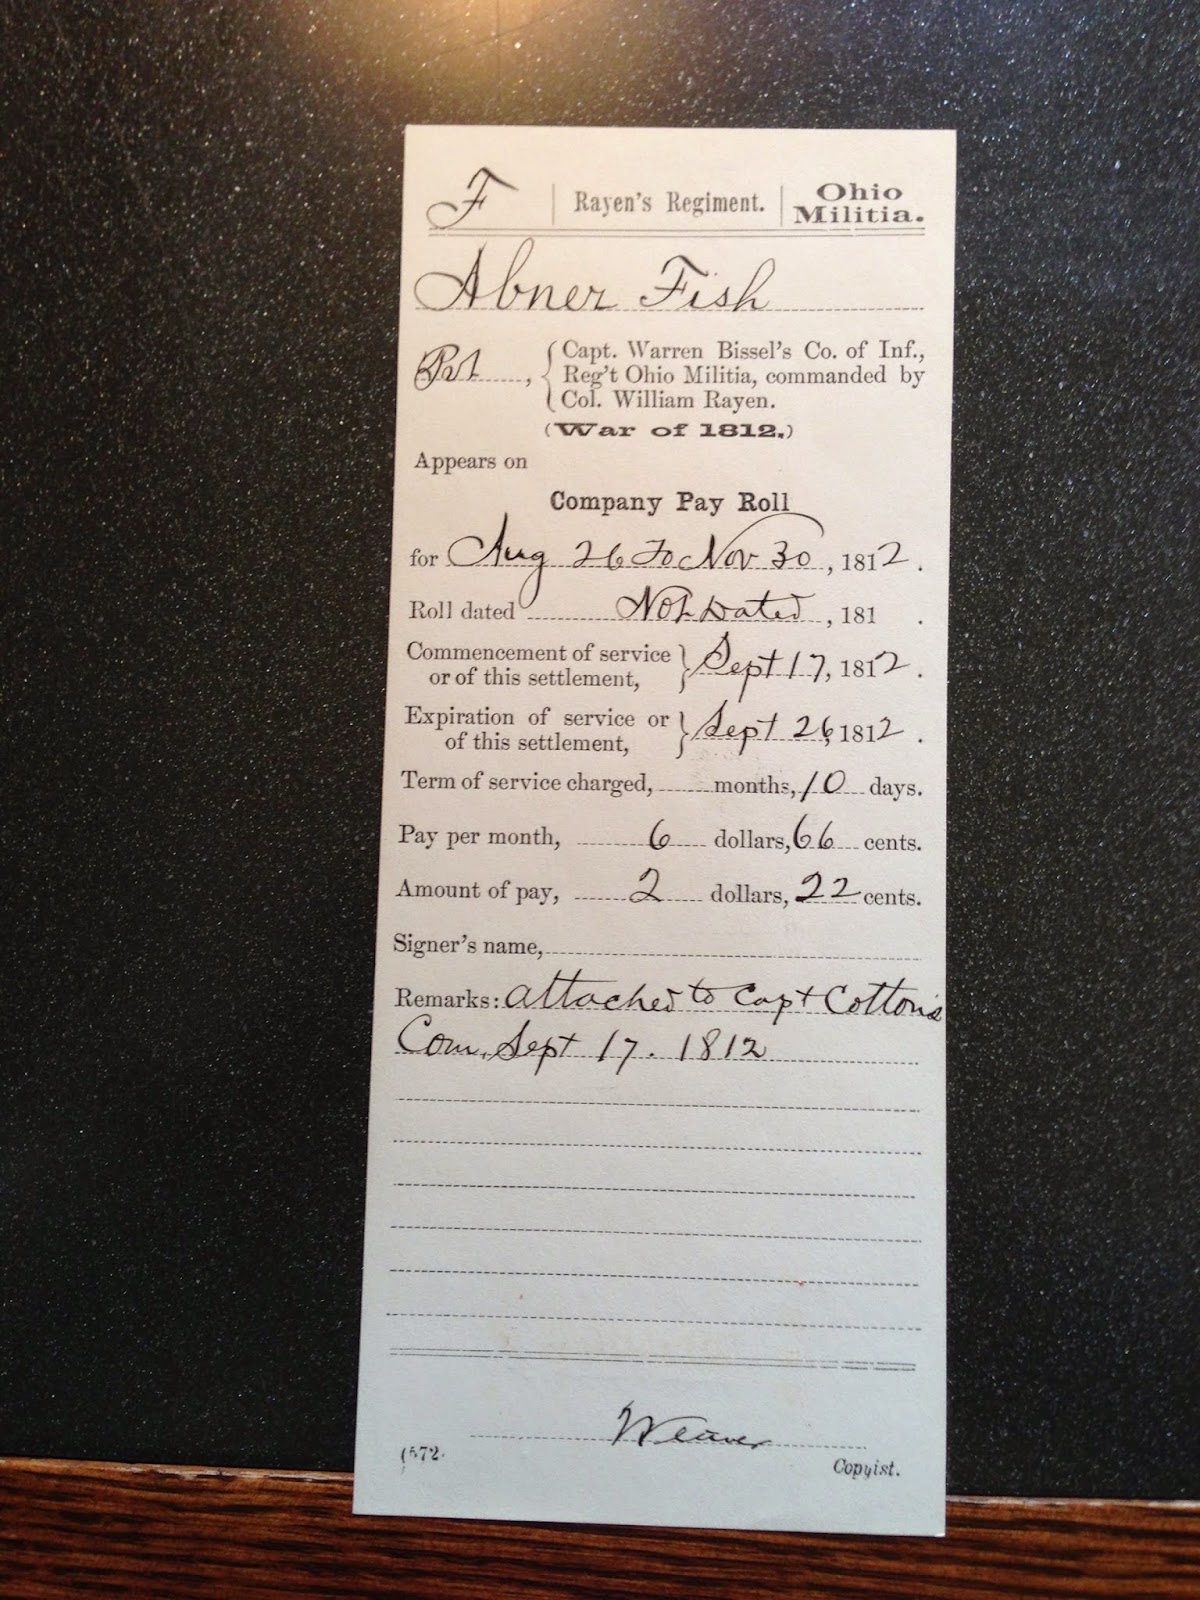 F | Rayen's Regiment. | Ohio Militia.
Abner Fish
Pvt, { Capt. Warren Bissel's Co. of Inf.,
Reg't Ohio Militia, commanded by
Col. William Rayen.
(War of 1812.)
Appears on
Company Pay Roll
for Aug 26 to Nov 30, 1812.
Roll dated Not Dated, 181 .
Commencement of service
or of this settlement, } Sept 17, 1812.
Expiration of service or
of this settlement, } Sept 26, 1812.
Term of service charged, months, 10 days.
Pay per month, 6 dollars, 66 cents.
Amount of pay, 2 dollars, 22 cents.
Signer's name,
Remarks: attached to Capt Cotton's
Com. Sept 17. 1812
Weaver
(572.
Copyist.